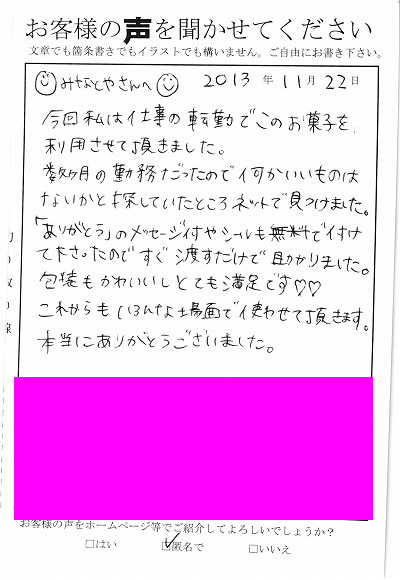 お客様の声を聞かせてください
文章でも箇条書きでもイラストでも構いません。ご自由にお書き下さい。
みなとやさんへ 2013 年 11 月 22 日
今回私は仕事の転勤でこのお菓子を
利用させて頂きました。
数ヶ月の勤務だったので何かいいものは
ないかと探していたところネットで見つけました。
「ありがとう」のメッセージ付やシールも無料で付け
て下さったのですぐ渡すだけで助かりました。
包装もかわいいしとても満足です♡♡
これからもいろんな場面で使わせて頂きます。
本当にありがとうございました。
お客様の声をホームページ等でご紹介してよろしいでしょうか？
□はい ☑匿名で □いいえ